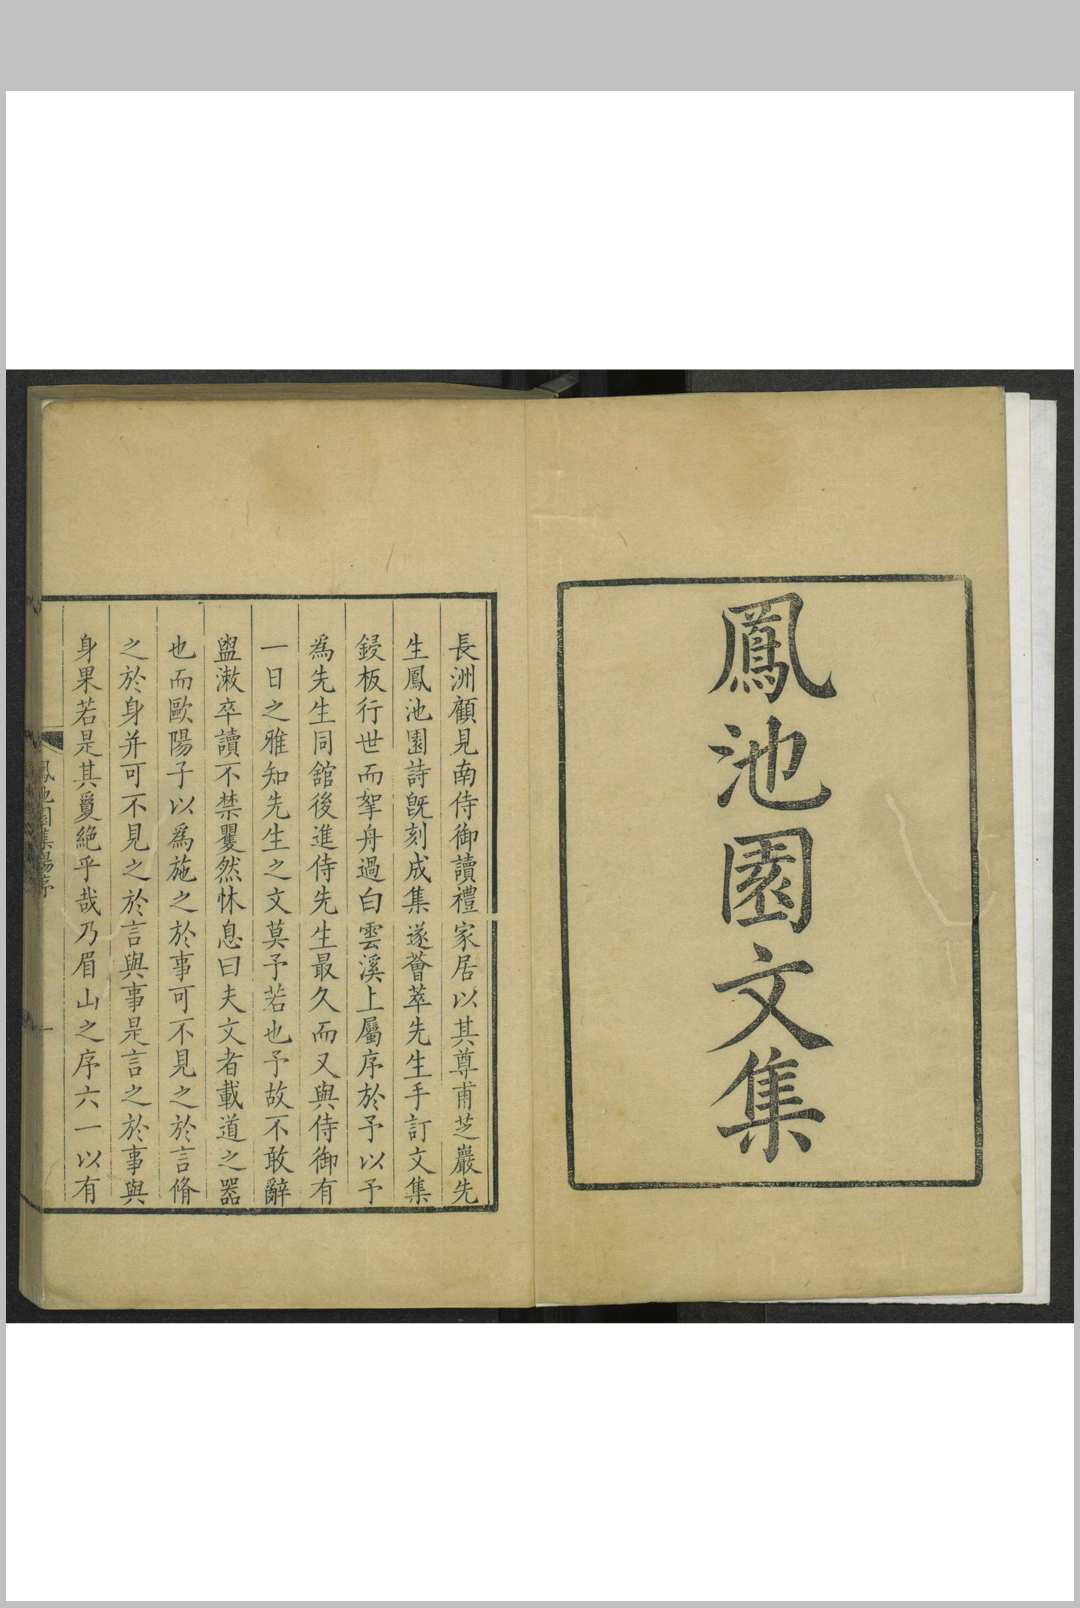 鳳池園文集
長洲顧見南侍御讀禮家居以其尊甫芝巖先
生鳳池園詩既刻成集遂薈萃先生手訂文集
鋟板行世而挐舟過白雲溪上屬序於予以予
為先生同館後進侍先生最久而又與侍御有
一日之雅知先生之文莫予若也予故不敢辭
盥漱卒讀不禁矍然怵息曰夫文者載道之器
也而歐陽子以爲施之於事可不見之於言脩
之於身并可不見之於言與事是言之於事與
身果若是其敻絶乎哉乃眉山之序六一以有
鳳池園集楊序
一